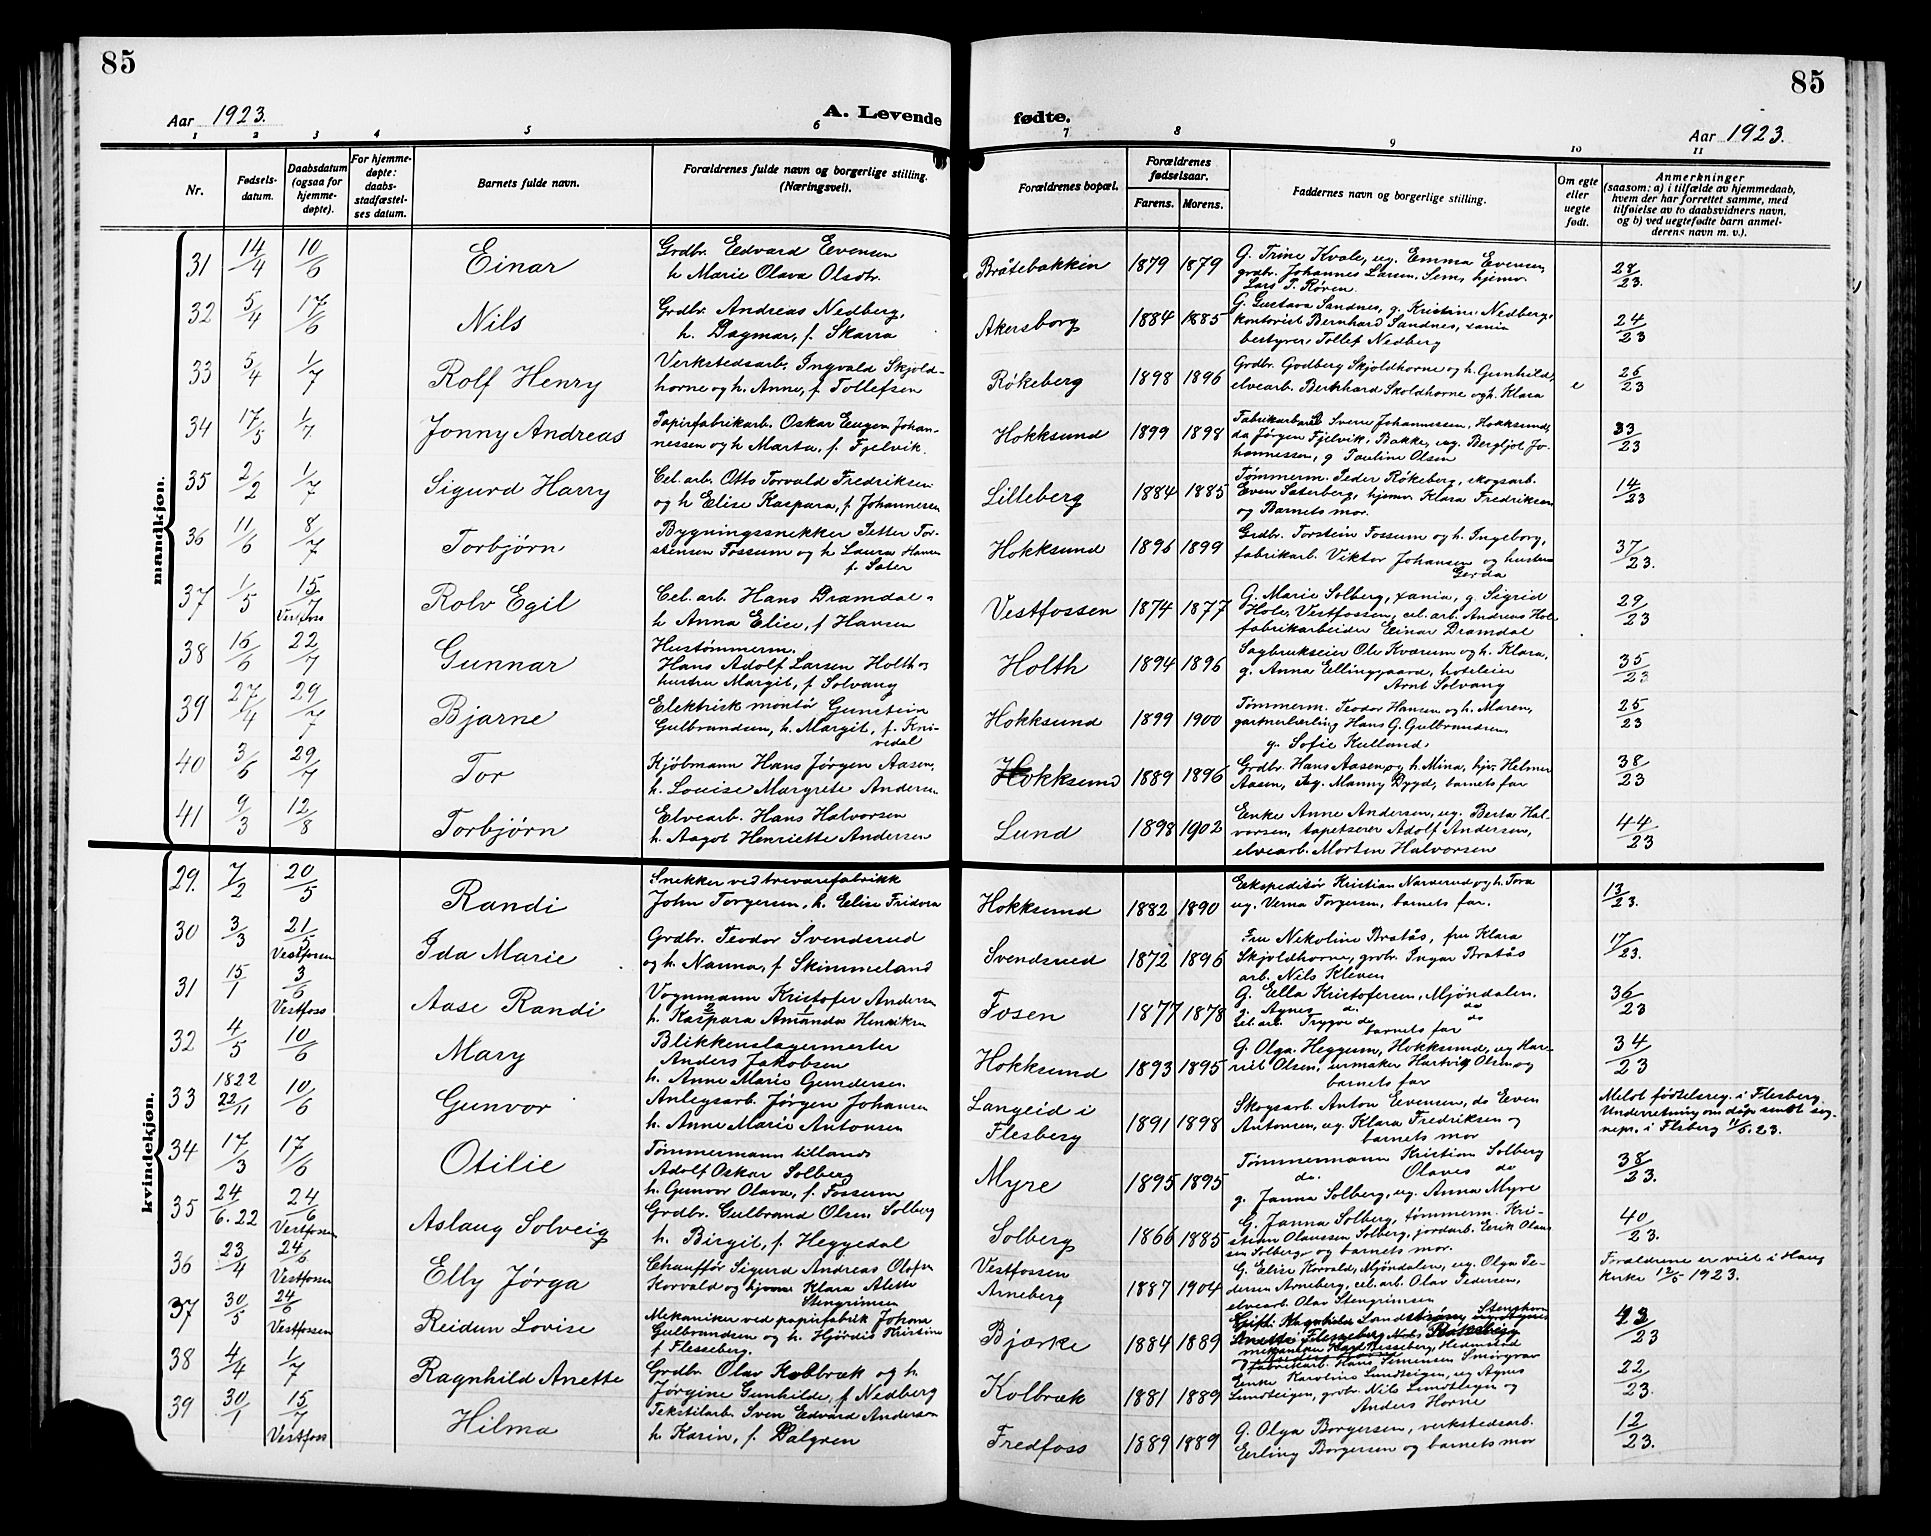 85
85
Aar 1923.
A. Levende
fødte.
Aar 1923.
1 2 3 4 5 6 7 8 9 10 11
Nr.
Fødsels-
datum.
Daabsdatum
(ogsaa for
hjemme-
døpte).
For hjemme-
døpte:
daabs-
stadfæstel-
ses datum.
Barnets fulde navn.
Forældrenes fulde navn og borgerlige stilling.
(Næringsvei).
Forældrenes bopæl.
Forældrenes
fødselsaar.
Farens. Morens.
Faddernes navn og borgerlige stilling.
Om egte
eller
uegte
født.
Anmerkninger
(saasom: a) i tilfælde av hjemmedaab,
hvem der har forrettet samme, med
tilføielse av to daabsvidners navn,
og b) ved uegtefødte barn anmel-
derens navn m. v.).
mandkjøn.
31 14/4 10/6 Einar
Grdbr. Edvard Evensen
h Marie Olava Olsdtr.
Bråtebakken 1879 1879
G. Trine Kvale, ug. Emma Evensen,
grdbr. Johannes Larsen, Sem, hjemv.
Lars T. Røren
28/23.
32 5/4 17/6 Nils
Grdbr. Andreas Nedberg,
h. Dagmar, f. Skarra
Akersborg 1884 1885
G. Gustava Sandnes, g. Kristine Nedberg,
kontorist Bernhard Sandnes, xania
bestyrer Tollef Nedberg
24/23
33 5/4 1/7 Rolf Henry
Verkstedsarb. Ingvald Skjold-
horne og h. Anne, f. Tollefsen
Røkeberg 1898 1896
Grdbr. Godberg Skjoldhorne og h. Gunhild,
elvearb. Bernhard Skoldhorne og h. Klara
e
26/23
34 17/5 1/7. Jonny Andreas
Papirfabrikarb. Oskar Eugen Johan-
nessen og h. Marta, f. Fjelvik.
Hokksund 1899 1898
Fabrikarbeid. Sverre Johannessen, Hokksund,
da Jørgen Fjelvik, Bakke, ug. Bergljot Jo-
hannessen, g Pauline Olsen
33/23
35 2/2 1/7 Sigurd Harry
Cel. arb. Otto Torvald Fredriksen
og h Elise Kaspara, f. Johannesen
Lilleberg 1884 1885
Tømmerm. Peder Røkeberg, skogsarb.
Even Saterberg, hjemv. Klara Fredriksen
og Barnets mor.
14/23
36 11/6 8/7 Torbjørn
Bygningssnekker Petter Tor-
stensen Fossum og h Laura Hansen
f. Sater
Hokksund 1896 1899
Grdbr. Torstein Fossum og h. Ingeborg,
fabrikarb. Viktor Johansen og hustru
Gerda
37/23.
37 1/5 15/7 Vestfoss Rolv Egil
Cel. arb. Hans Dramdal
h Anna Elise, f Hansen
Vestfossen 1874 1877
G. Marie Solberg, xania, g. Sigrid
Hole, Vestfossen, cel. arb. Andreas Hol
fabrikarbeider Einar Dramdal
29/23
38 16/6 22/7 Gunnar
Hustømmerm.
Hans Adolf Larsen Holth og
hustru Margit, f Solvang
Holth 1894 1896
Sagbrukseier Ole Kværum og h. Klara,
g. Anna Ellinggaard, hoteleier
Arnt Solvang
35/23
39 27/4 29/7 Bjarne
Elektrisk montør Gunstein
Gulbrandsen, h. Margit, f. Kni-
vedal
Hokksund 1899 1900
Tømmerm. Teodor Hansen og h. Maren,
gartnerlærling Hans G. Gulbrandsen,
g. Sofie Kulland.
25/23
40 3/6 29/7 Tor
Kjøbmann Hans Jørgen Aasen,
h. Louise Margrete Andersen
Hokksund 1889 1896
Grdbr. Hans Aasen og h. Mina, hjv. Helmer
Aasen, frg. Manny Bygd, barnets far
38/23
41 9/3 12/8 Torbjørn
Elvearb. Hans Halvorsen
h. Aagot Henriette Andersen
Lund 1898 1902
Enke Anne Andersen, ug. Berta Hal-
vorsen, tapetserer Adolf Andersen,
elvearb. Morten Halvorsen
44/23
kvindekjøn.
29. 7/2 20/5 Randi
Snekker ved trevarefabrikk
John Torgersen, h. Elise Fridora
Hokksund 1882 1890
Ekspeditør Kristian Narverud og h. Tora
ug. Verna Torgersen, barnets far.
13/23.
30 3/3 21/5 Vestfossen Ida Marie
Grdbr. Teodor Svendsrud
og h. Nanna, f Skimmeland
Svendsrud 1872 1896
Fru Nikoline Bratås, fru Klara
Skjoldhorne, grbr. Ingar Bratås
arb. Nils Kleven
17/23.
31 15/1 3/6 Vestfoss Aase Randi
Vognmann Kristofer Andersen
h. Kaspara Amanda Henriksen
Fosen 1877 1878
G. Ella Kristofersen, Mjöndalen.
g. Agnes do. do
cel. arb. Trygve do do
barnets far
36/23
32 4/5 10/6 Mary
Blikkenslagermester
Anders Jakobsen
h. Anne Marie Gundersen
Hokksund 1893 1895
G. Olga Heggum, Hokksund, ug Har-
riet Olsen, urmaker Hartvig Olsen og
barnets far
34/23
33 1822 22/11 10/6 Gunvor
Anlegsarb. Jørgen Johansen
h. Anne Marie Antonsen
Langeid i
Flesberg 1891 1898
Skogsarb. Anton Evensen, do Even
Antonsen, ug. Klara Fredriksen og
barnets mor
Meldt fødselsreg. i Flesberg.
Underretning om dåp sendt sog-
nepr. i Flsberg 11/6. 23.
34 17/3 17/6 Otilie
Tømmermann tillands
Adolf Oskar Solberg
h. Gunvor Olava, f. Fossum
Myre 1895 1895
Tømmermann Kristian Solberg
do. Olaves do
g. Janna Solberg, ug. Anna Myre
38/23.
35 24/6.22 24/6 Vestfossen Aslaug Solveig
Grdbr. Gulbrand Olsen Solberg
h. Birgit, f. Heggedal
Solberg 1866 1885
G. Janna Solberg, tømmerm. Kri-
stian Olaussen Solberg, jordarb. Erik Olaus-
sen Solberg og barnets mor.
40/23.
36 23/4 24/6 Vestfossen Elly Jørga
Chauffør Sigurd Andreas Olsen
Korvald og hjemv. Klara Alette
Stengrimsen
Vestfossen
Arneberg 1887 1904
G. Elise Korvald, Mjöndalen, ug. Olga Pe-
dersen Arneberg, cel. arb. Olav Pedersen,
elvearb. Olav Stengrimsen
Foraldrene er viet i Haug
kirke 12/5 1923.
37 30/5 24/6 Vestfossen Reidun Lovise
Mekaniker ved papirfabrik Johan
Gulbrandsen og h. Hjørdis Kristine
f Flesseberg.
Bjærke 1884 1889
fabrikarb. Hans Simensen Smørgrav
43/23
38 4/4 1/7 Ragnhild Anette
Grdbr. Olav Kolbræk og h.
Jørgine Gunhilde, f Nedberg
Kolbræk 1881 1889
Enke Karoline Lundteigen, ug Agnes
Lundteigen, grdbr. Nils Lundteigen og
Anders Horne
22/23.
39 30/1 15/7 Vestfoss Hilma
Tekstilarb. Sven Edvard Andersen
h Karin, f. Dalgren
Fredfoss 1889 1889
G. Olga Borgersen, verkstedsarb.
Erling Borgersen og barnets mor
12/23.